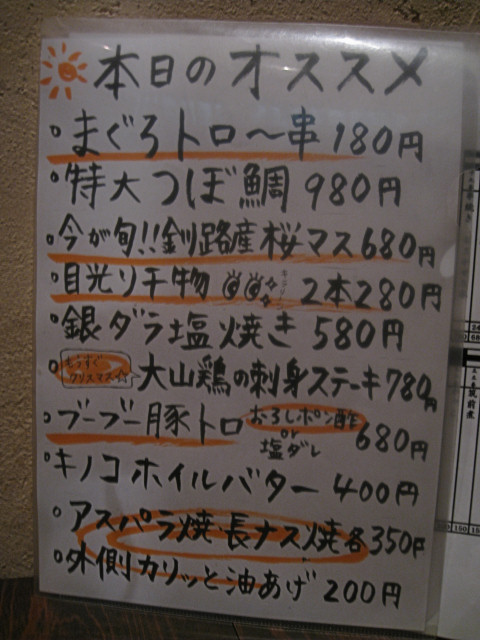 本日のオススメ
まぐろトロ〜串 180円
特大つぼ鯛 980円
今が旬!!釧路産桜マス 680円
目光り干物 2本280円
銀ダラ塩焼き 580円
もうすぐクリスマス☆ 大山鶏の刺身ステーキ 780円
ブーブー豚トロ おろしポン酢 or 塩ダレ 680円
キノコホイルバター 400円
アスパラ焼・長ナス焼 各350円
外側カリッと油あげ 200円